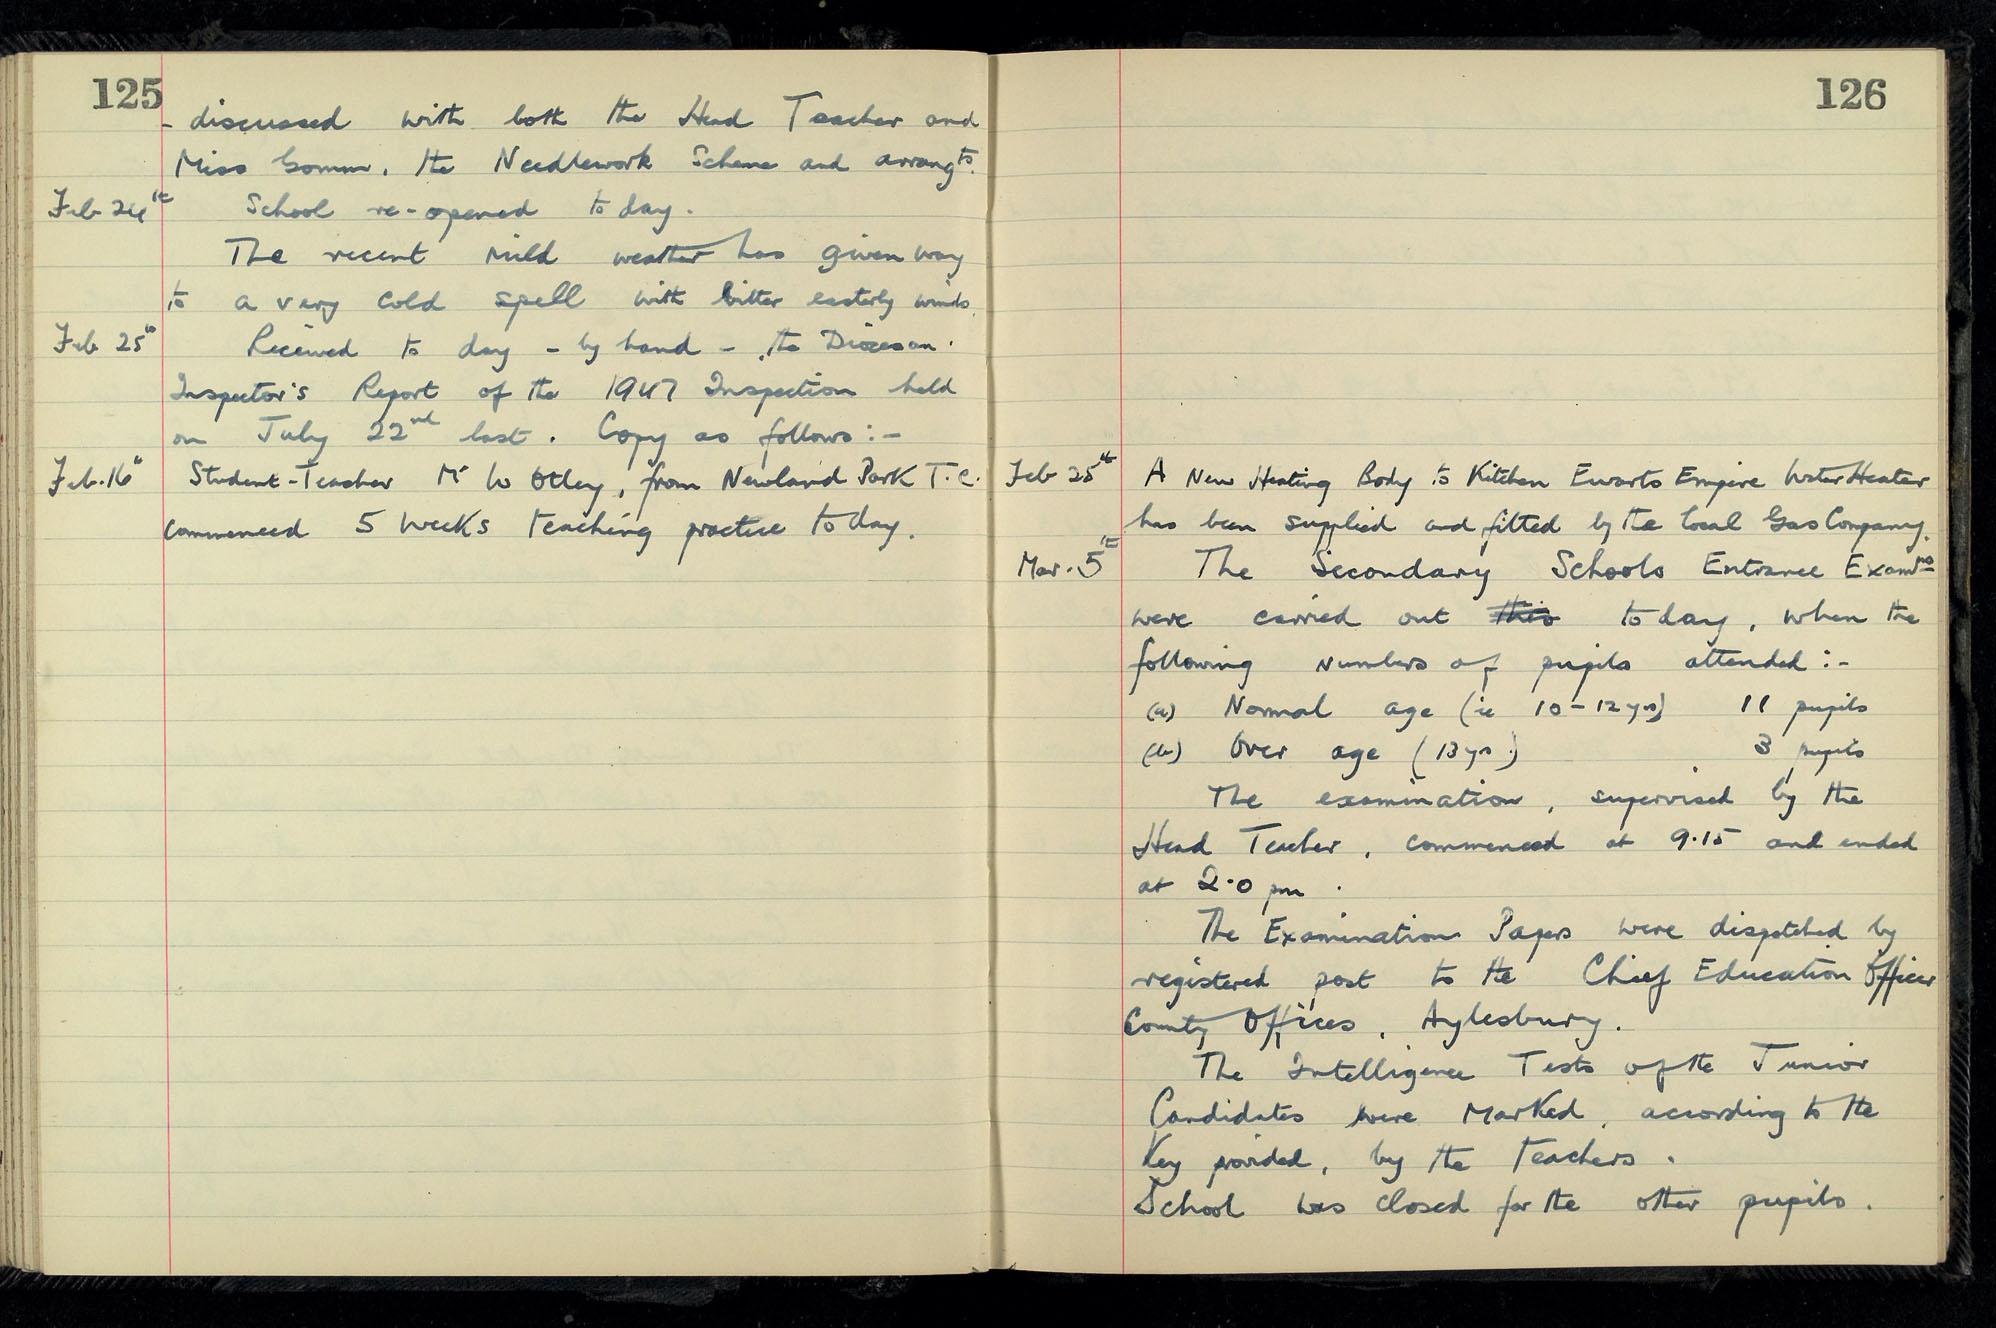 125
- discussed with both the Head Teacher and
Miss Gomm, the Needlework Scheme and arrangts.
Feb 24th School re-opened to day.
The recent mild weather has given way
to a very cold spell with bitter easterly winds.
Feb 25th Received to day - by hand - the Diocesan
Inspector's Report of the 1947 Inspection held
on July 22nd last. Copy as follows:-
Feb. 16th Student-Teacher Mr W Otley, from Newland Park T.C.
commenced 5 weeks teaching practice to day.
126
Feb 25th A New Heating Body to Kitchen Ewarts Empire Water Heater
has been supplied and fitted by the local Gas Company.
Mar. 5th The Secondary Schools Entrance Examns
were carried out this to day, when the
following numbers of pupils attended:-
(a) Normal age (ie 10-12 yrs) 11 pupils
(b) Over age (13 yrs.) 3 pupils
The examination, supervised by the
Head Teacher, commenced at 9.15 and ended
at 2.0 pm.
The Examination Papers were dispatched by
registered post to the Chief Education Officer
County Offices, Aylesbury.
The Intelligence Tests of the Junior
Candidates were Marked, according to the
Key provided, by the Teachers.
School was closed for the other pupils.